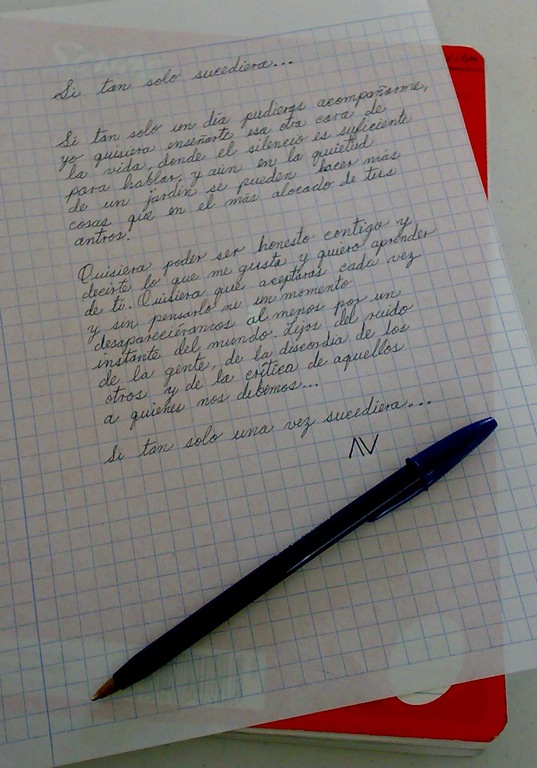 Si tan solo sucediera...
Si tan solo un día pudieras acompañarme,
yo quisiera enseñarte esa otra cara de
la vida, donde el silencio es suficiente
para hablar, y aún en la quietud
de un jardín se pueden hacer más
cosas que en el más alocado de tus
antros.
Quisiera poder ser honesto contigo y
decirte lo que me gusta y quiero aprender
de ti. Quisiera que aceptaras cada vez
y sin pensarlo ni un momento
desapareciéramos al menos por un
instante del mundo. Lejos del ruido
de la gente, de la discordia de los
otros y de la crítica de aquellos
a quienes nos debemos...
Si tan solo una vez sucediera...
AV